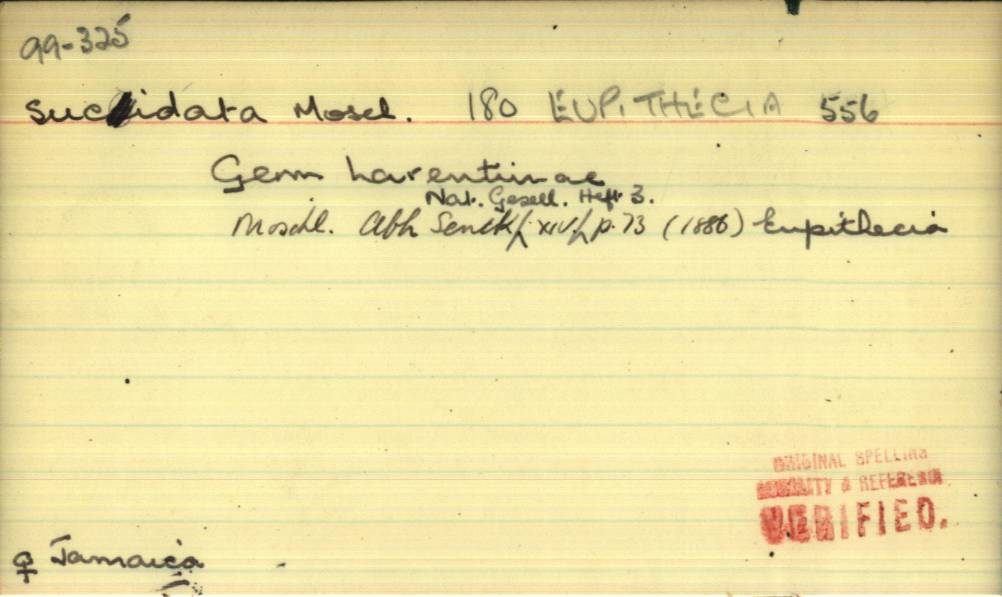 99-325
sucidata Moschl. 180 EUPITHECIA 556
Geom Larentiinae
Nat. Gesell. Heft 3.
Moschl. Abh Senck, XIV, p. 73 (1886) Eupithecia
ORIGINAL SPELLING
AUTHORITY & REFERENCE
VERIFIED.
♀ Jamaica